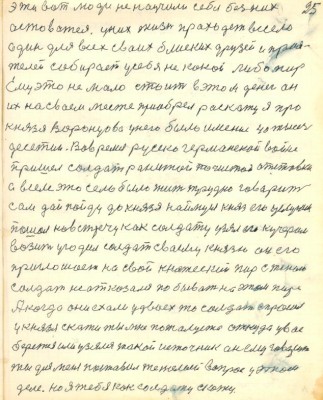 25
эти вот люди не научили себя без них
оставатся. у них жизн праходет весело
один для всех сваих близких друзей и прия-
телей собирает у себя не какой либо пир
Ему это не мало стоит в этом денег он
их на сваем месте приобрел раскажу я про
князя Воронцова у него было имение
десетин. Во время русско германской войне
пришел солдат раненой
в селе это село было жит трудно говарит
сам дай пойду до князя наймус княз его
пошел на встречу как солдату узял его кучером
возит угодил солдат сваему князю он его
приглошает на свой княжеский пир с женой
солдат не отказался побыват на этом пиру
А когда они ехали у двоех то солдат спросил
у князя скажи ты мне пожалуста откуда у вас
берется или узялся такой источник а он ему говарит
ты для меня поставил тяжелой вопрос у этом
деле. но я тебя как солдату скажу.